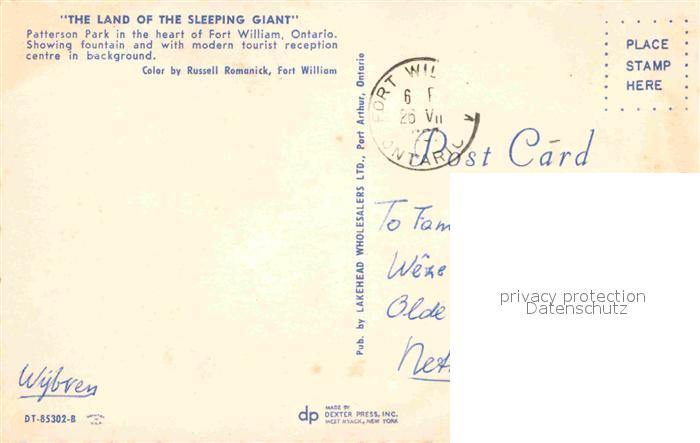 "THE LAND OF THE SLEEPING GIANT"
Patterson Park in the heart of Fort William, Ontario.
Showing fountain and with modern tourist reception
centre in background.
Color by Russell Romanick, Fort William
PLACE
STAMP
HERE
FORT WIL
26 VII
ONTARIO
Post Card
Pub. by LAKEHEAD WHOLESALERS LTD., Port Arthur, Ontario
To Fam
Olde
Net
privacy protection
Datenschutz
Wijbren
DT-85302-B
dp
MADE BY
DEXTER PRESS, INC.
WEST NYACK, NEW YORK